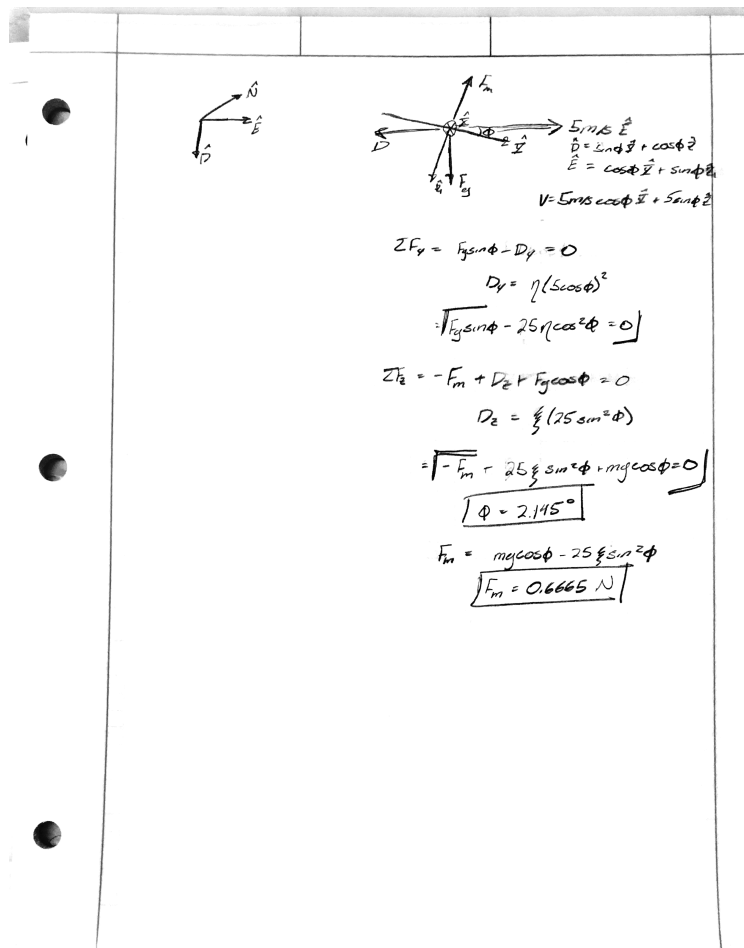 N̂
Ê
D̂
F_m
x̂
ϕ
5m/s Ê
D
ŷ
D̂ = sinϕ ŷ + cosϕ ẑ
Ê = cosϕ ŷ + sinϕ ẑ
ẑ
F_g
V = 5m/s cosϕ ŷ + 5sinϕ ẑ
ΣF_y = F_g sinϕ - D_y = 0
D_y = η(5cosϕ)²
= F_g sinϕ - 25ηcos²ϕ = 0
ΣF_z = -F_m + D_z + F_g cosϕ = 0
D_z = ξ(25 sin²ϕ)
= -F_m + 25ξ sin²ϕ + mgcosϕ = 0
ϕ = 2.145°
F_m = mgcosϕ - 25ξsin²ϕ
F_m = 0.6665 N